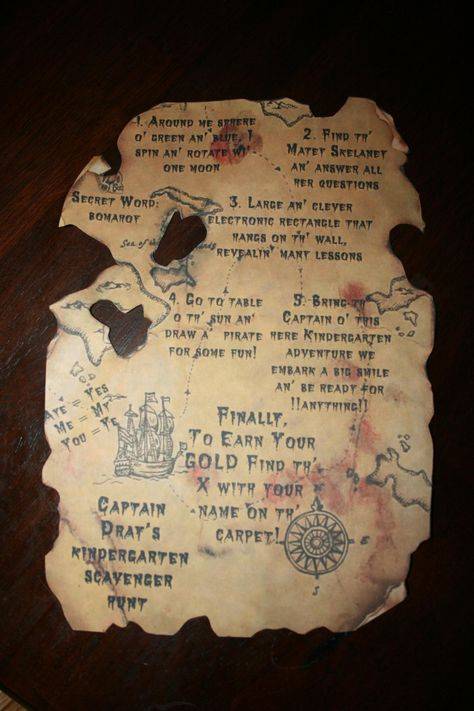 1. Around me sphere
o' green an' blue, I
spin an' rotate wi'
one moon
2. Find th'
Matey Skelanet
an' answer all
her questions
Secret Word:
bomahot
3. Large an' clever
electronic rectangle that
hangs on th' wall,
revealin' many lessons
Sea of the
4. Go to table
o' th' sun an'
draw a' pirate
for some fun!
5. Bring th'
Captain o' this
here Kindergarten
adventure we
embark a big smile
an' be ready for
!!anything!!
Aye = Yes
Me = My
You = Ye
Finally,
To Earn Your
GOLD Find th'
X with your
name on th'
carpet!
Captain
Drat's
Kindergarten
Scavenger
Hunt
E
S